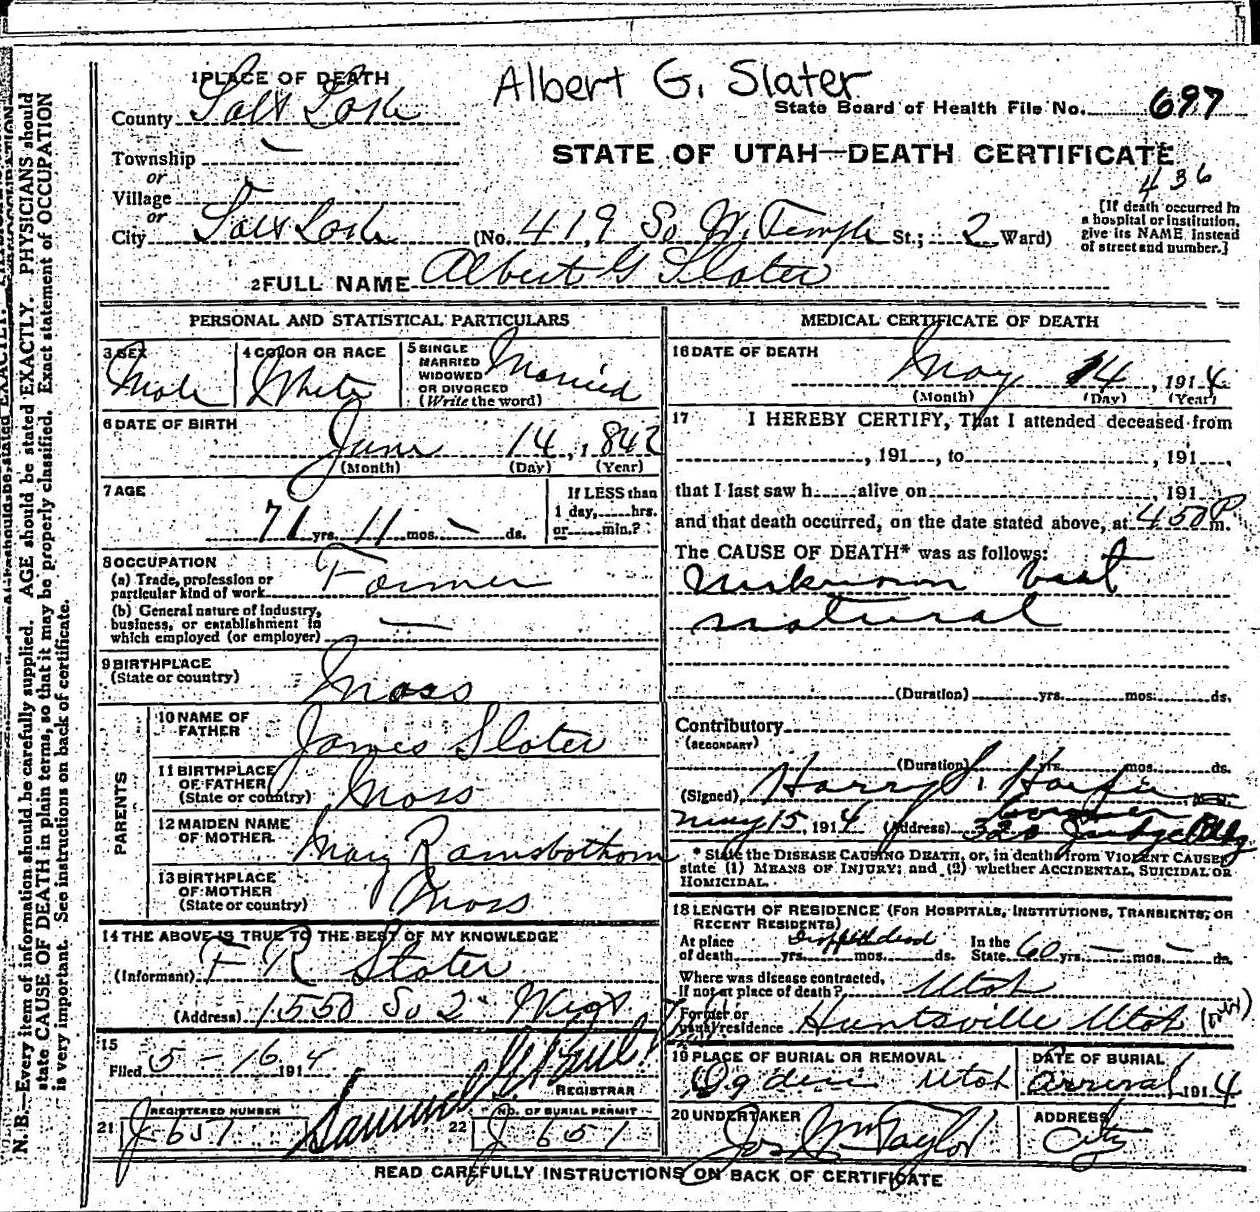 Albert G. Slater
1 PLACE OF DEATH
State Board of Health File No. 697
County Salt Lake
STATE OF UTAH—DEATH CERTIFICATE
Township —
or
436
Village
or
City Salt Lake (No. 419 So W. Temple St.; 2 Ward)
[If death occurred in
a hospital or institution,
give its NAME, instead
of street and number.]
2 FULL NAME Albert G Slater
PERSONAL AND STATISTICAL PARTICULARS
3 SEX
Male
4 COLOR OR RACE
White
5 SINGLE
MARRIED
WIDOWED
OR DIVORCED
(Write the word)
Married
6 DATE OF BIRTH
June 14, 1842
(Month) (Day) (Year)
7 AGE
71 yrs. 11 mos. — ds.
If LESS than
1 day, hrs.
or min.?
8 OCCUPATION
(a) Trade, profession or
particular kind of work Farmer
(b) General nature of industry,
business, or establishment in
which employed (or employer) —
9 BIRTHPLACE
(State or country) Mass
PARENTS
10 NAME OF
FATHER James Slater
11 BIRTHPLACE
OF FATHER
(State or country) Mass
12 MAIDEN NAME
OF MOTHER Mary Ramsbothom
13 BIRTHPLACE
OF MOTHER
(State or country) Mass
14 THE ABOVE IS TRUE TO THE BEST OF MY KNOWLEDGE
(Informant) F R Slater
(Address) 1550 So 2 West
15
Filed 5-16 1914
REGISTRAR
21 REGISTERED NUMBER
J 651
22 NO. OF BURIAL PERMIT
J 651
MEDICAL CERTIFICATE OF DEATH
16 DATE OF DEATH
May 14, 1914
(Month) (Day) (Year)
17 I HEREBY CERTIFY, That I attended deceased from
, 191 , to , 191 ,
that I last saw h alive on , 191
and that death occurred, on the date stated above, at 4 50 P m.
The CAUSE OF DEATH* was as follows:
unknown but
natural
(Duration) yrs. mos. ds.
Contributory
(SECONDARY)
(Duration) yrs. mos. ds.
(Signed) Harry S. M.D.
Coroner
May 15, 1914 (Address) 320 Judge Bldg
* State the DISEASE CAUSING DEATH, or, in deaths from VIOLENT CAUSES,
state (1) MEANS OF INJURY; and (2) whether ACCIDENTAL, SUICIDAL OR
HOMICIDAL.
18 LENGTH OF RESIDENCE (FOR HOSPITALS, INSTITUTIONS, TRANSIENTS, OR
RECENT RESIDENTS)
At place
of death Dropped dead yrs. mos. ds.
In the
State 60 yrs. — mos. — ds.
Where was disease contracted,
If not at place of death? Utah
Former or
usual residence Huntsville Utah
19 PLACE OF BURIAL OR REMOVAL
Ogden Utah
DATE OF BURIAL
arrival 1914
20 UNDERTAKER
Jos Wm Taylor
ADDRESS
City
READ CAREFULLY INSTRUCTIONS ON BACK OF CERTIFICATE
N. B.—Every item of information should be carefully supplied. AGE should be stated EXACTLY. PHYSICIANS should
state CAUSE OF DEATH in plain terms, so that it may be properly classified. Exact statement of OCCUPATION
is very important. See instructions on back of certificate.